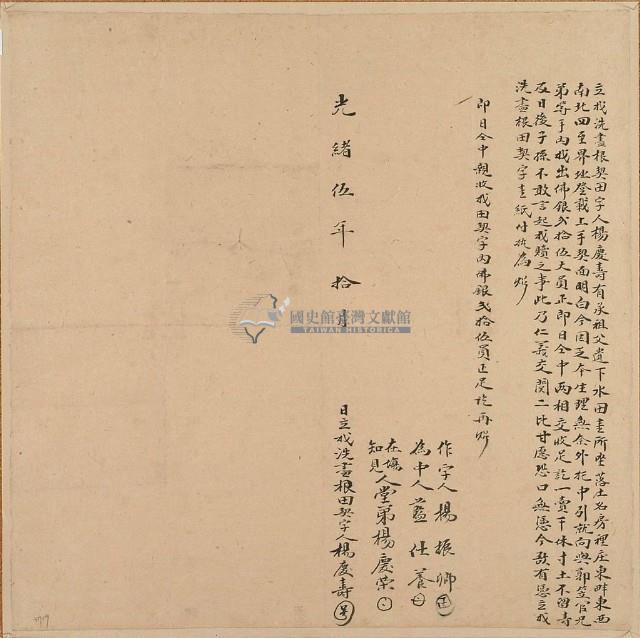 立找洗盡根契田字人楊慶壽有承祖父遺下水田壹所坐落土名房裡庄東畔東西
南北四至界址登載上手契面明白今因乏本生理無奈外托中引就向與鄭笠官兄
弟等手內找出佛銀弍拾伍大員正即日仝中兩相交收足訖一賣千休寸土不留壽
及日後子孫不敢言起找贖之事此乃仁義交關二比甘愿恐口無憑今欲有憑立找
洗盡根田契字壹紙付執為炤
即日仝中親收找田契字內佛銀弍拾伍員正足訖再炤
作字人楊振卿
為中人藍仕養
在塲知見人堂弟楊慶榮
光緒伍年拾月 日立找洗盡根田契字人楊慶壽
國史館臺灣文獻館
TAIWAN HISTORICA